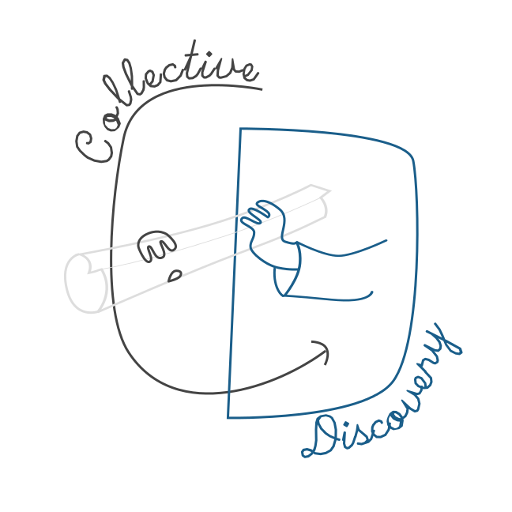 Collective
Discovery